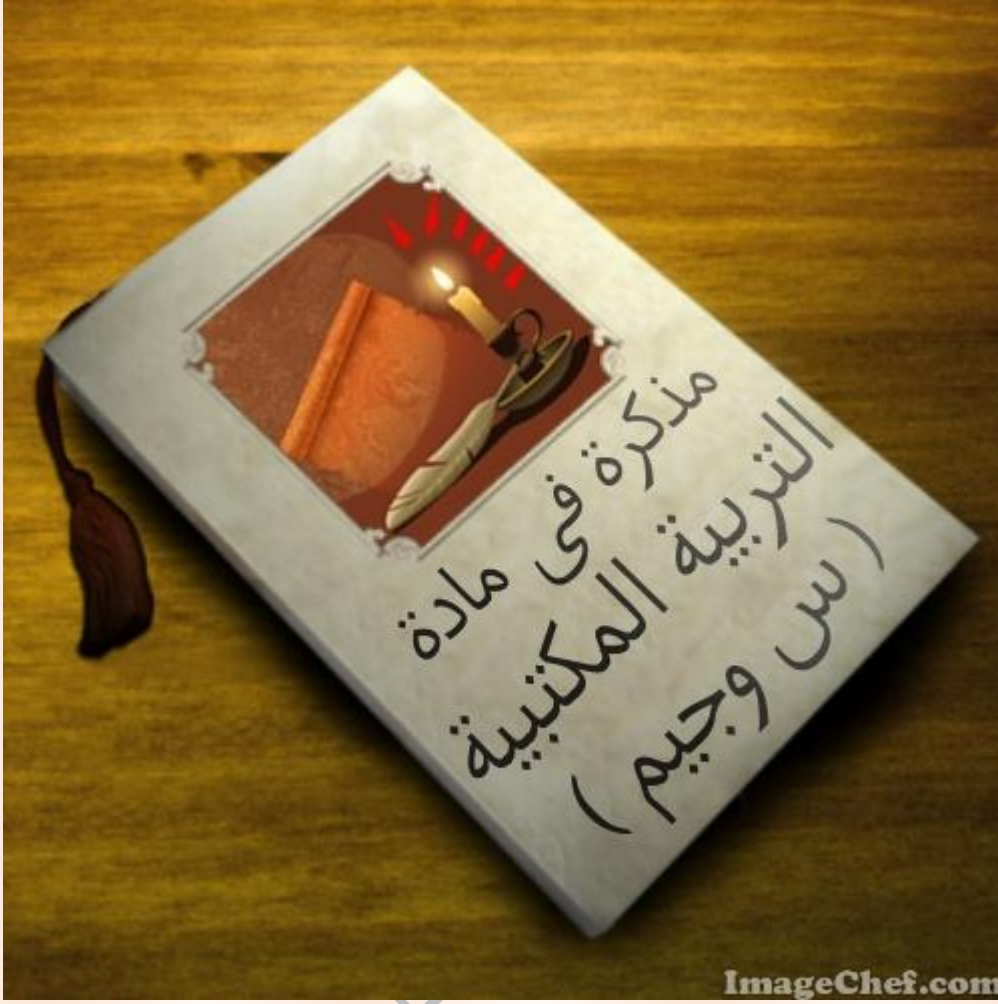 مذكرة فى مادة
التربية المكتبية
( س وجيم )
ImageChef.com